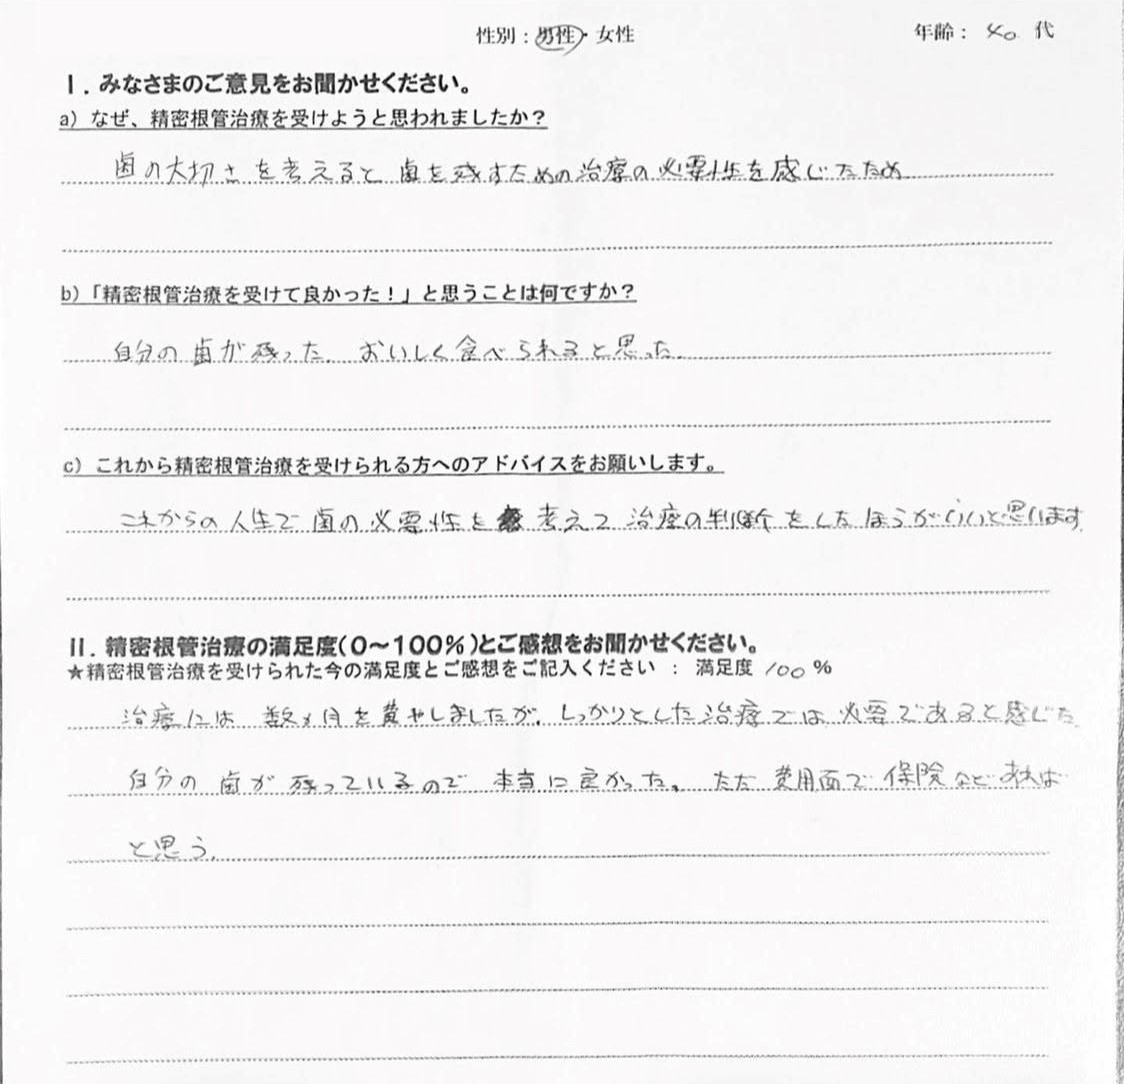 性別：男性・女性 年齢：40代
Ⅰ．みなさまのご意見をお聞かせください。
a）なぜ、精密根管治療を受けようと思われましたか？
歯の大切さを考えると歯を残すための治療の必要性を感じたため
b）「精密根管治療を受けて良かった！」と思うことは何ですか？
自分の歯が残った。おいしく食べられると思った。
c）これから精密根管治療を受けられる方へのアドバイスをお願いします。
これからの人生で歯の必要性を考えて治療の判断をしたほうがいいと思います。
Ⅱ．精密根管治療の満足度（0～100％）とご感想をお聞かせください。
★精密根管治療を受けられた今の満足度とご感想をご記入ください ： 満足度 100 ％
治療には数ヶ月を費やしましたが、しっかりとした治療では必要であると感じた。
自分の歯が残っているので本当に良かった。ただ費用面で保険などあれば
と思う。